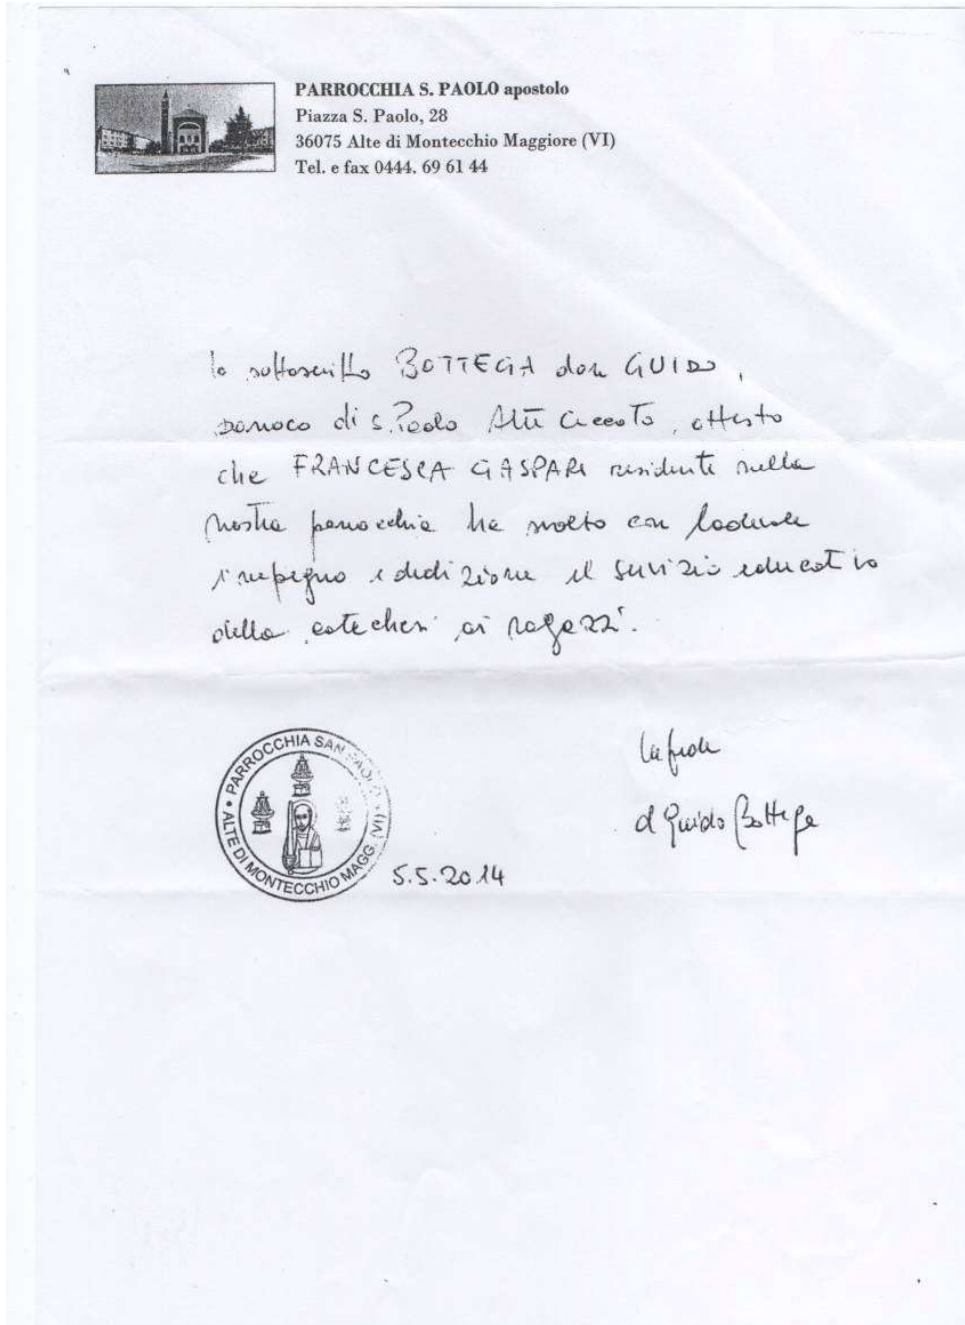 PARROCCHIA S. PAOLO apostolo
Piazza S. Paolo, 28
36075 Alte di Montecchio Maggiore (VI)
Tel. e fax 0444. 69 61 44
Io sottoscritto BOTTEGA don GUIDO,
parroco di S. Paolo Alte Ceccato, attesto
che FRANCESCA GASPARI residente nella
nostra parrocchia ha svolto con lodevole
impegno e dedizione il servizio educativo
della catechesi ai ragazzi.
In fede
d Guido Bottega
• PARROCCHIA SAN PAOLO • ALTE DI MONTECCHIO MAGG. (VI)
5.5.2014